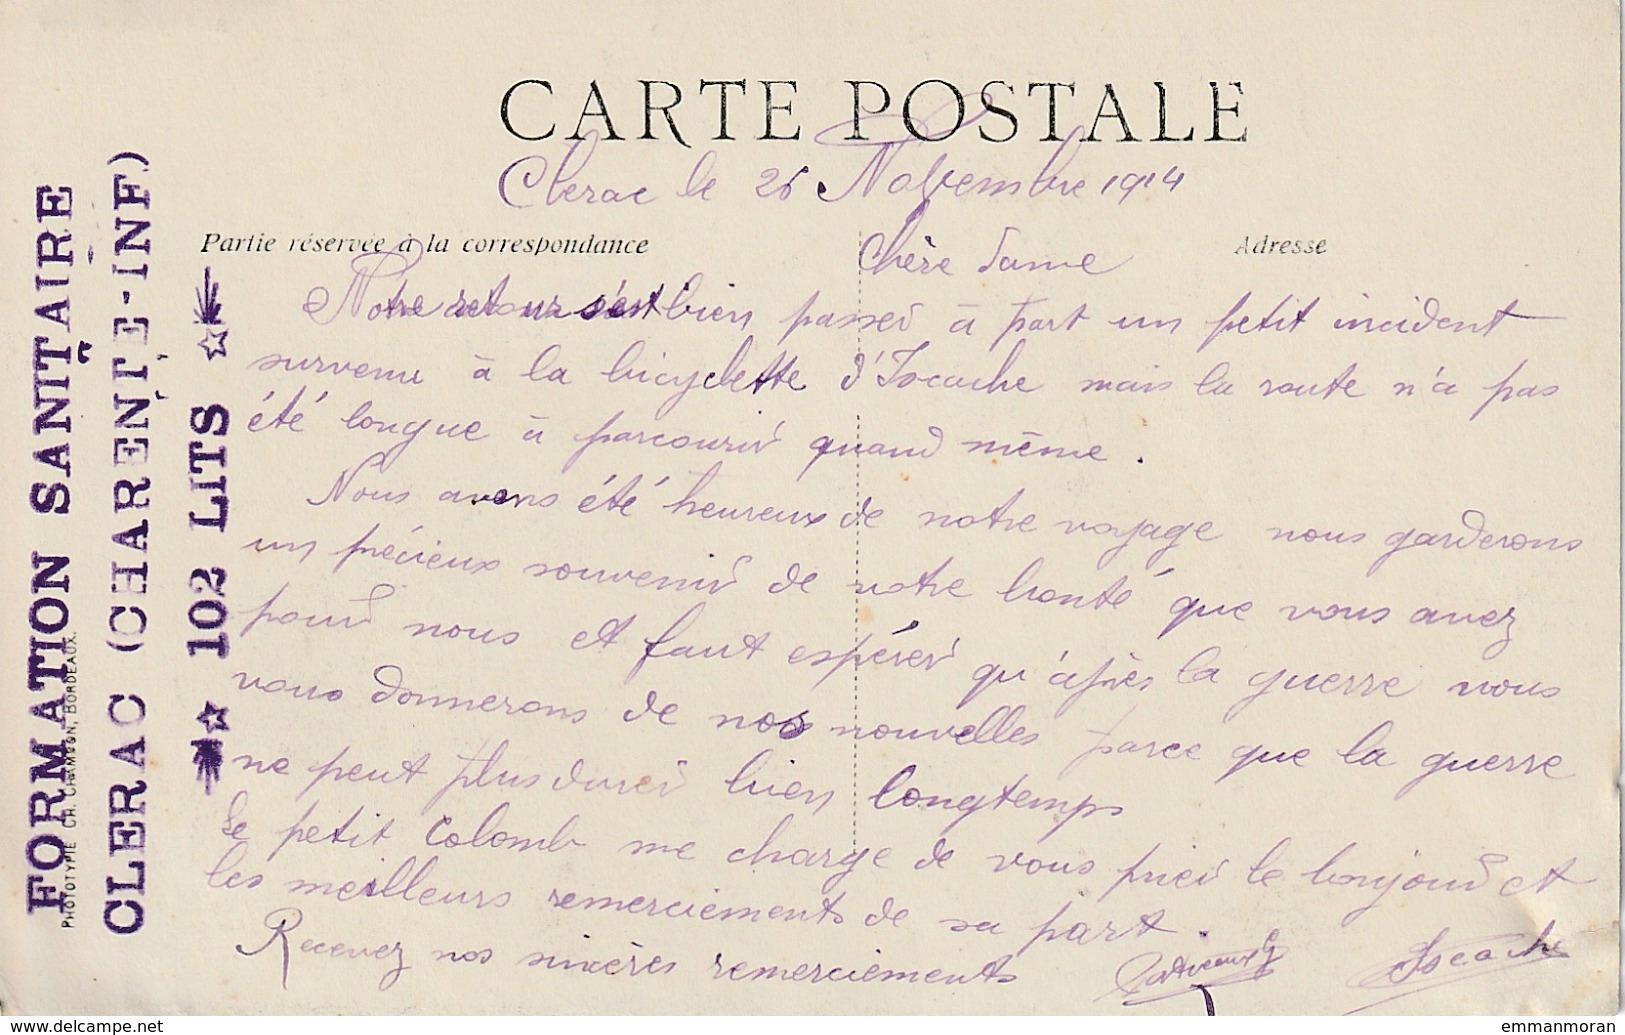 CARTE POSTALE
Clerac le 26 Novembre 1914
Partie réservée à la correspondance
Adresse
Chère Dame
Notre retour s'est bien passer à part un petit incident
survenu à la bicyclette d'Iscache mais la route n'a pas
été longue à parcourir quand même.
Nous avons été heureux de notre voyage nous garderons
un précieux souvenir de votre bonté que vous avez
pour nous et faut espérer qu'après la guerre nous
vous donnerons de nos nouvelles parce que la guerre
ne peut plus durer bien longtemps
Le petit Colomb me charge de vous prier le bonjour et
les meilleurs remerciements de sa part.
Recevez nos sincères remerciements
FORMATION SANITAIRE
CLERAC (CHARENTE-INF)
102 LITS
PHOTOTYPIE CH. CHAMBON, BORDEAUX.
www.delcampe.net
emmanmoran